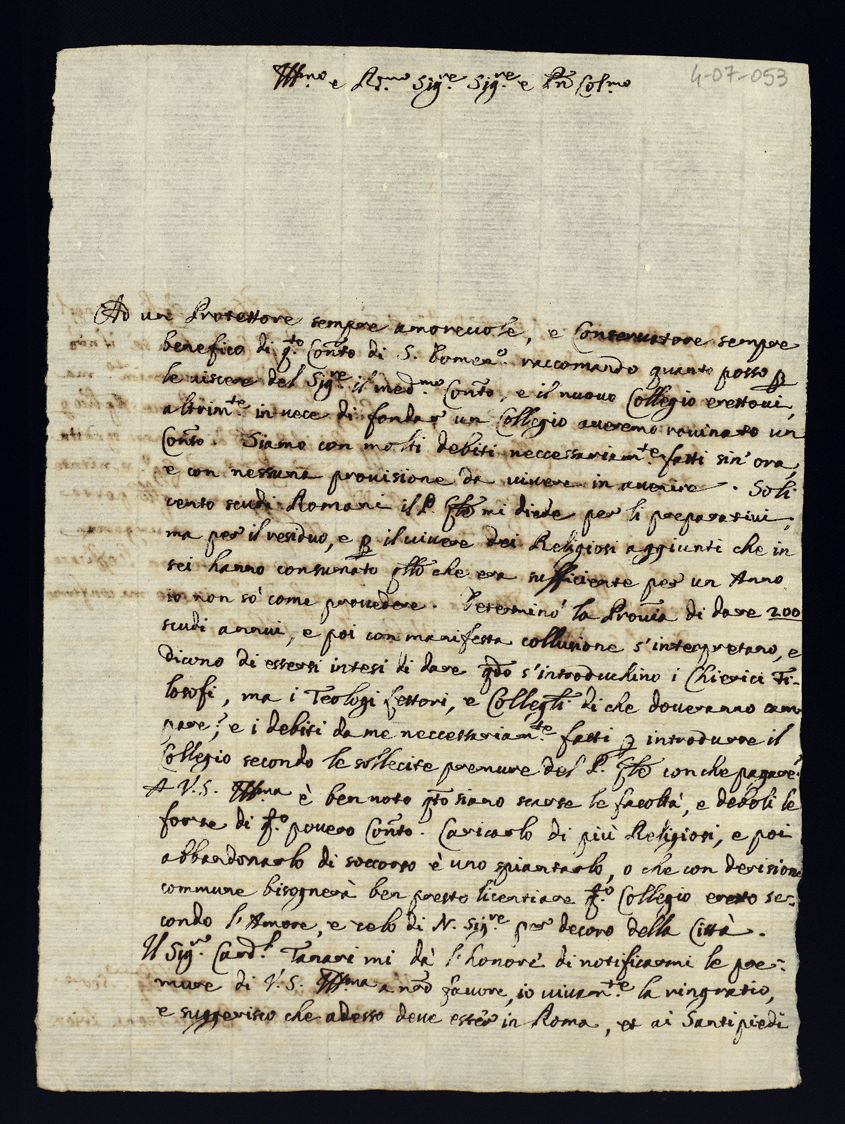 4-07-053
Ill.mo e R.mo Sig.re Sig.re e Pñ Col.mo
Ad un Protettore sempre amoreuole, e Conseruatore sempre
benefico di q.to Conto di S. Domen.o raccomando quanto posso p
le uiscere del Sig.re il med.mo Conto, e il nuouo Collegio erettoui,
altrim.te in uece di fondar un Collegio aueremo rouinato un
Conto. Siamo con molti debiti neccessariam.te fatti sin' ora,
e con nessuna prouisione da uiuere in auenire. Soli
cento scudi Romani il P. mi diede per li preparatiui,
ma per il residuo, e p il uiuere dei Religiosi aggiunti che in
sei hanno consumato che era sufficiente per un Anno
io non só come prouedere. Determinó la Prouia di dare 200
scudi annui, e poi con manifesta collusione s'interpretano, e
dicono di essersi intesi di dare qdo s'introduchino i Chierici Fi-
losofi, ma i Teologi Lettori, e Collegti di che doueranno cam
pare? e i debiti da me neccessariam.te fatti p introdurre il
Collegio secondo le sollecite premure del P. con che pagare?
A V.S. Ill.ma è ben noto qto siano scarse le facoltà, e deboli le
forse di q.to pouero Conto. Caricarlo di piú Religiosi, e poi
abbandonarlo di soccorso è uno spiantarlo, o che con derisione
commune bisognerà ben presto licentiare q.to Collegio eretto se-
condo l'Amore, e zelo di N. Sig.re per decoro della Città.
Il Sig.r Card.l Tanari mi dà l'honore di notificarmi le pre-
mure di V.S. Ill.ma a nro fauore, io uiuam.te la ringratio,
e suggerisco che adesso deue esser in Roma, et ai Santi piedi